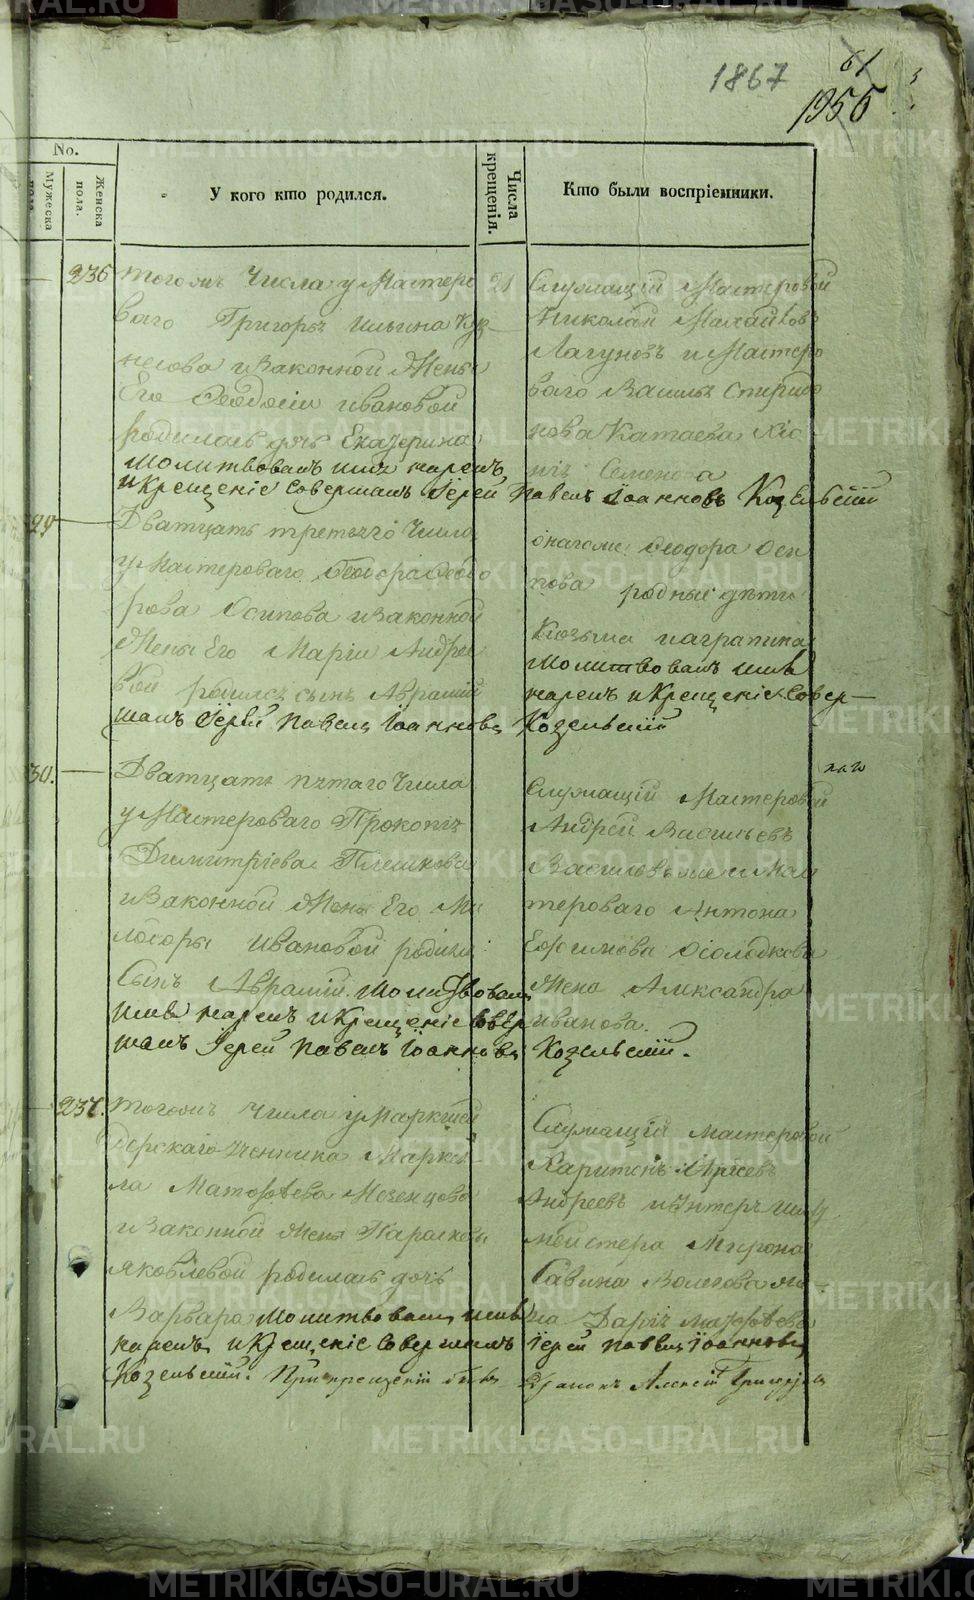 1867
61
1956
No.
Мужеска пола.
Женска пола.
У кого кто родился.
Числа крещенія.
Кто были воспріемники.
236 тогожъ Числа у Мастеро 21
ваго Григорья Ильина Куз
нецова изаконной Жены
Его Ѳеодосіи ивановой
родилась дочь Екатерина
Молитвовалъ имя нарекъ
икрещеніе совершалъ Іерей Павелъ Іоанновъ Козельскій
Служащій Мастеровой
Николай Михайловъ
Лагуновъ и Мастеро
ваго Василья Спиридо
нова Катаева
Семенова
29 Дватцать третьяго Числа
у Мастероваго Ѳеодора Ѳеодо
рова Осипова изаконной
Жены Его Маріи Андрее
вой родился сынъ Аврамій
онагожъ Ѳеодора Оси
пова родные дѣти
Козьма
Молитвовалъ имя
нарекъ икрещеніе совер—
шалъ Іерей Павелъ Іоанновъ Козельскій
30. Дватцать пятаго Числа
у Мастероваго Прокопья
Димитріева Пѣшкова
изаконной Жены Его Ми
лодоры ивановой родился
Сынъ Аврамій. Молитвовалъ
имя нарекъ икрещеніе совер
шалъ Іерей Павелъ Іоанновъ Козельскій.
Служащій Мастеровой
Андрей Васильевъ
Мас
тероваго Антона
Ефимова Солодкова
Жена Александра
иванова.
237. тогожъ Числа у Маркшей
дерскаго Ученика Марке
ла Матѳеева Мезенцова
изаконной Жены Парасковьи
яковлевой родилась дочь
Варвара Молитвовалъ имя
нарекъ икрещеніе совершалъ Іерей Павелъ Іоанновъ
Козельскій. При крещеніи былъ Дьяконъ Алексій Григорьевъ
Служащій мастеровой
Харитонъ
Андреевъ иУнтеръ шихт
мейстера Мирона
Савина Волегова же—
на Дарья Матѳеева
METRIKI.GASO-URAL.RU